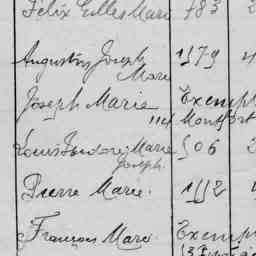 Félix Gilles Marie 783
Augustin Joseph 1579
Marie
Joseph Marie Exempt
114 Montfort
Louis Isidore Marie 506
Joseph
Pierre Marie. 1112
François Marie Exemp